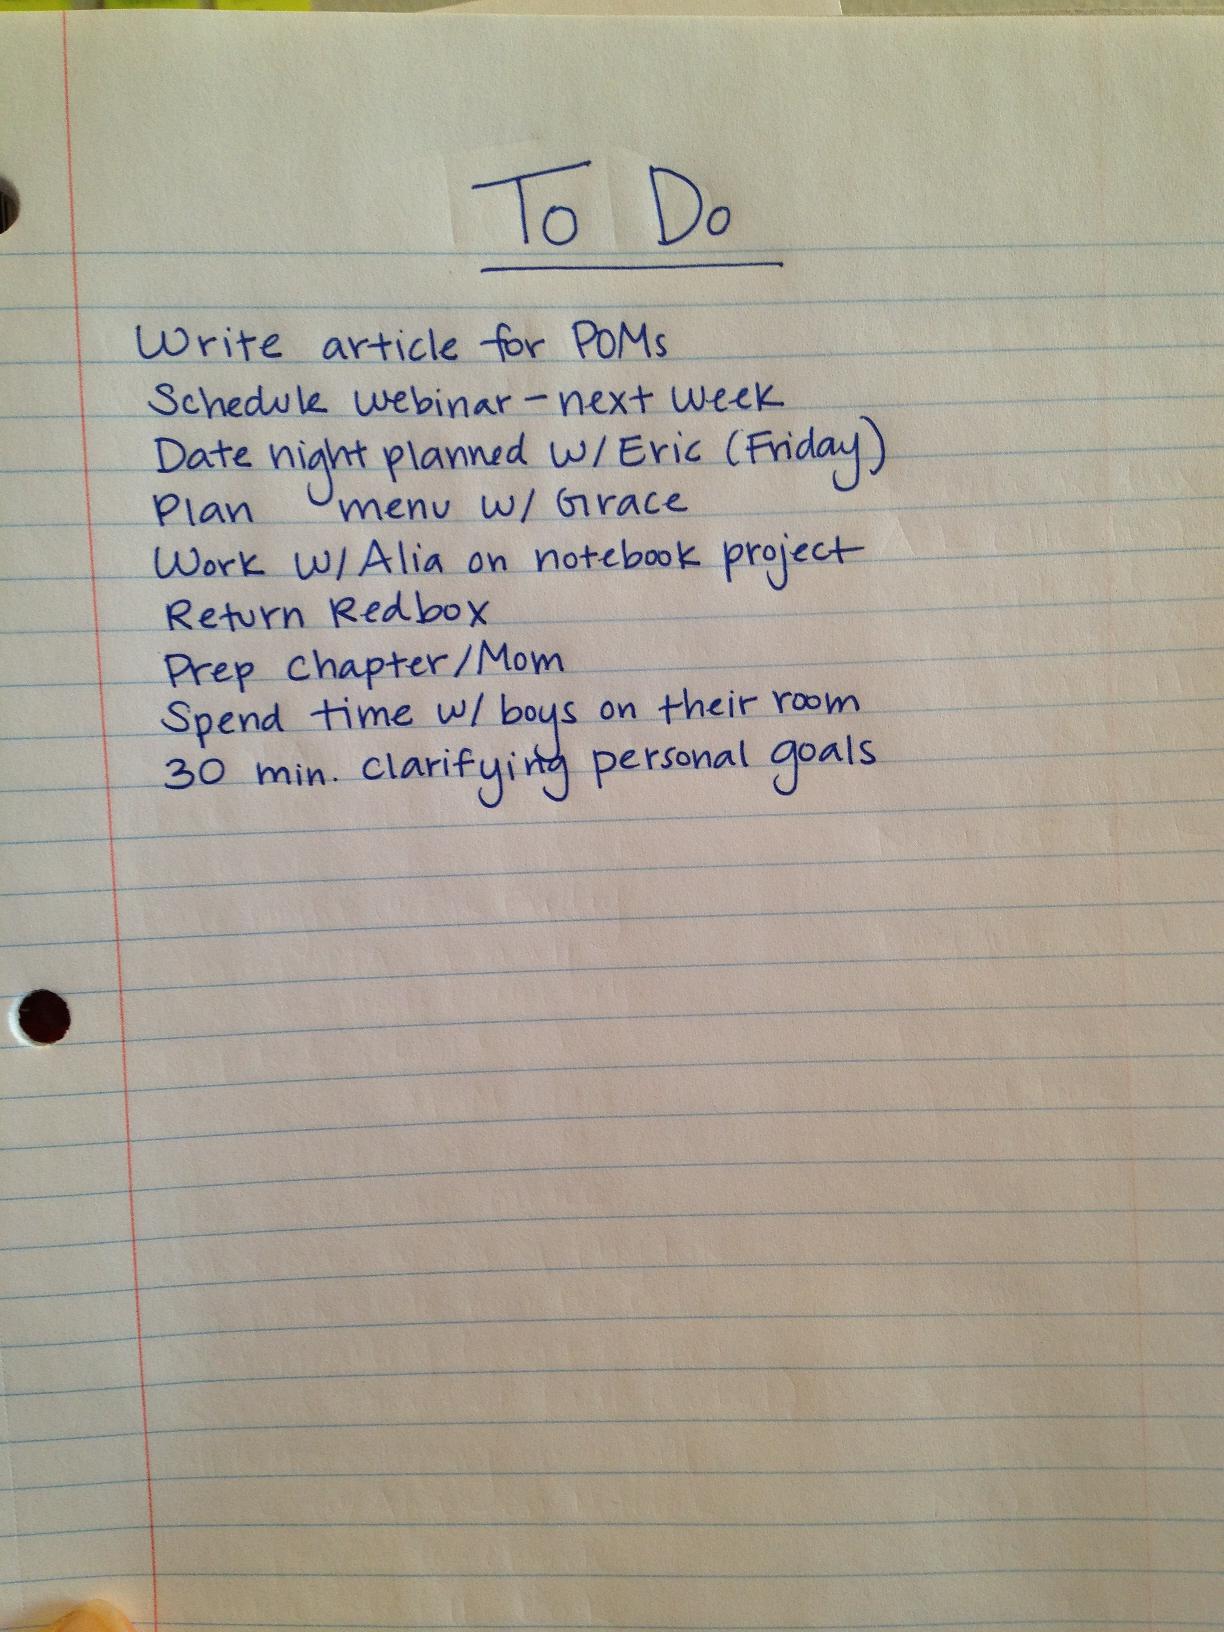 To Do
Write article for POMs
Schedule webinar - next week
Date night planned w/ Eric (Friday)
Plan menu w/ Grace
Work w/ Alia on notebook project
Return Redbox
Prep Chapter/Mom
Spend time w/ boys on their room
30 min. clarifying personal goals